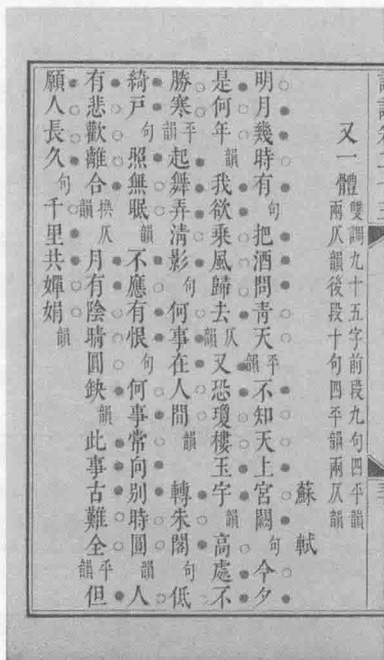 又一體 雙調九十五字前段九句四平韻
兩仄韻後段十句四平韻兩仄韻
蘇軾
明月幾時有句把酒問青天平韻不知天上宮闕句今夕
是何年韻我欲乘風歸去仄韻又恐瓊樓玉宇韻高處不
勝寒平韻起舞弄清影句何事在人間韻轉朱閣句低
綺戶句照無眠韻不應有恨句何事常向別時圓韻人
有悲歡離合換仄韻月有陰晴圓缺韻此事古難全平韻但
願人長久句千里共嬋娟韻